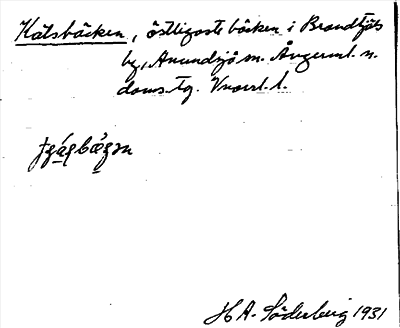 Kätsbäcken, östligaste bäcken i Brandtjäls
by, Anundsjö sn. Ångerml. n.
doms. tg. Vnorrl. l.
H A. Söderberg 1931